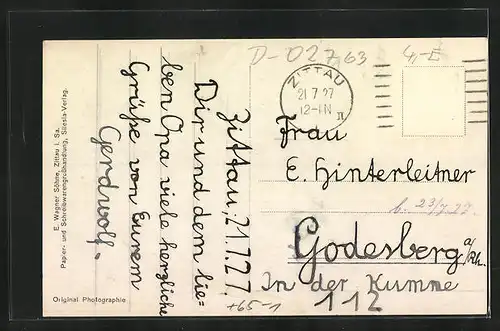 D-02763
4,-E
ZITTAU
21.7.27
12-1N
II
Zittau, 21.7.27.
Dir und dem lie=
ben Opa viele herzliche
Grüße von Eurem
Gerdwolf.
Frau
E. Hinterleitner
b. 23/7.27.
Godesberg a/Rh.
In der Kumme
112
+65-1
E. Wagner Söhne, Zittau i. Sa.
Papier- und Schreibwarengroßhandlung, Silesia-Verlag.
Original Photographie